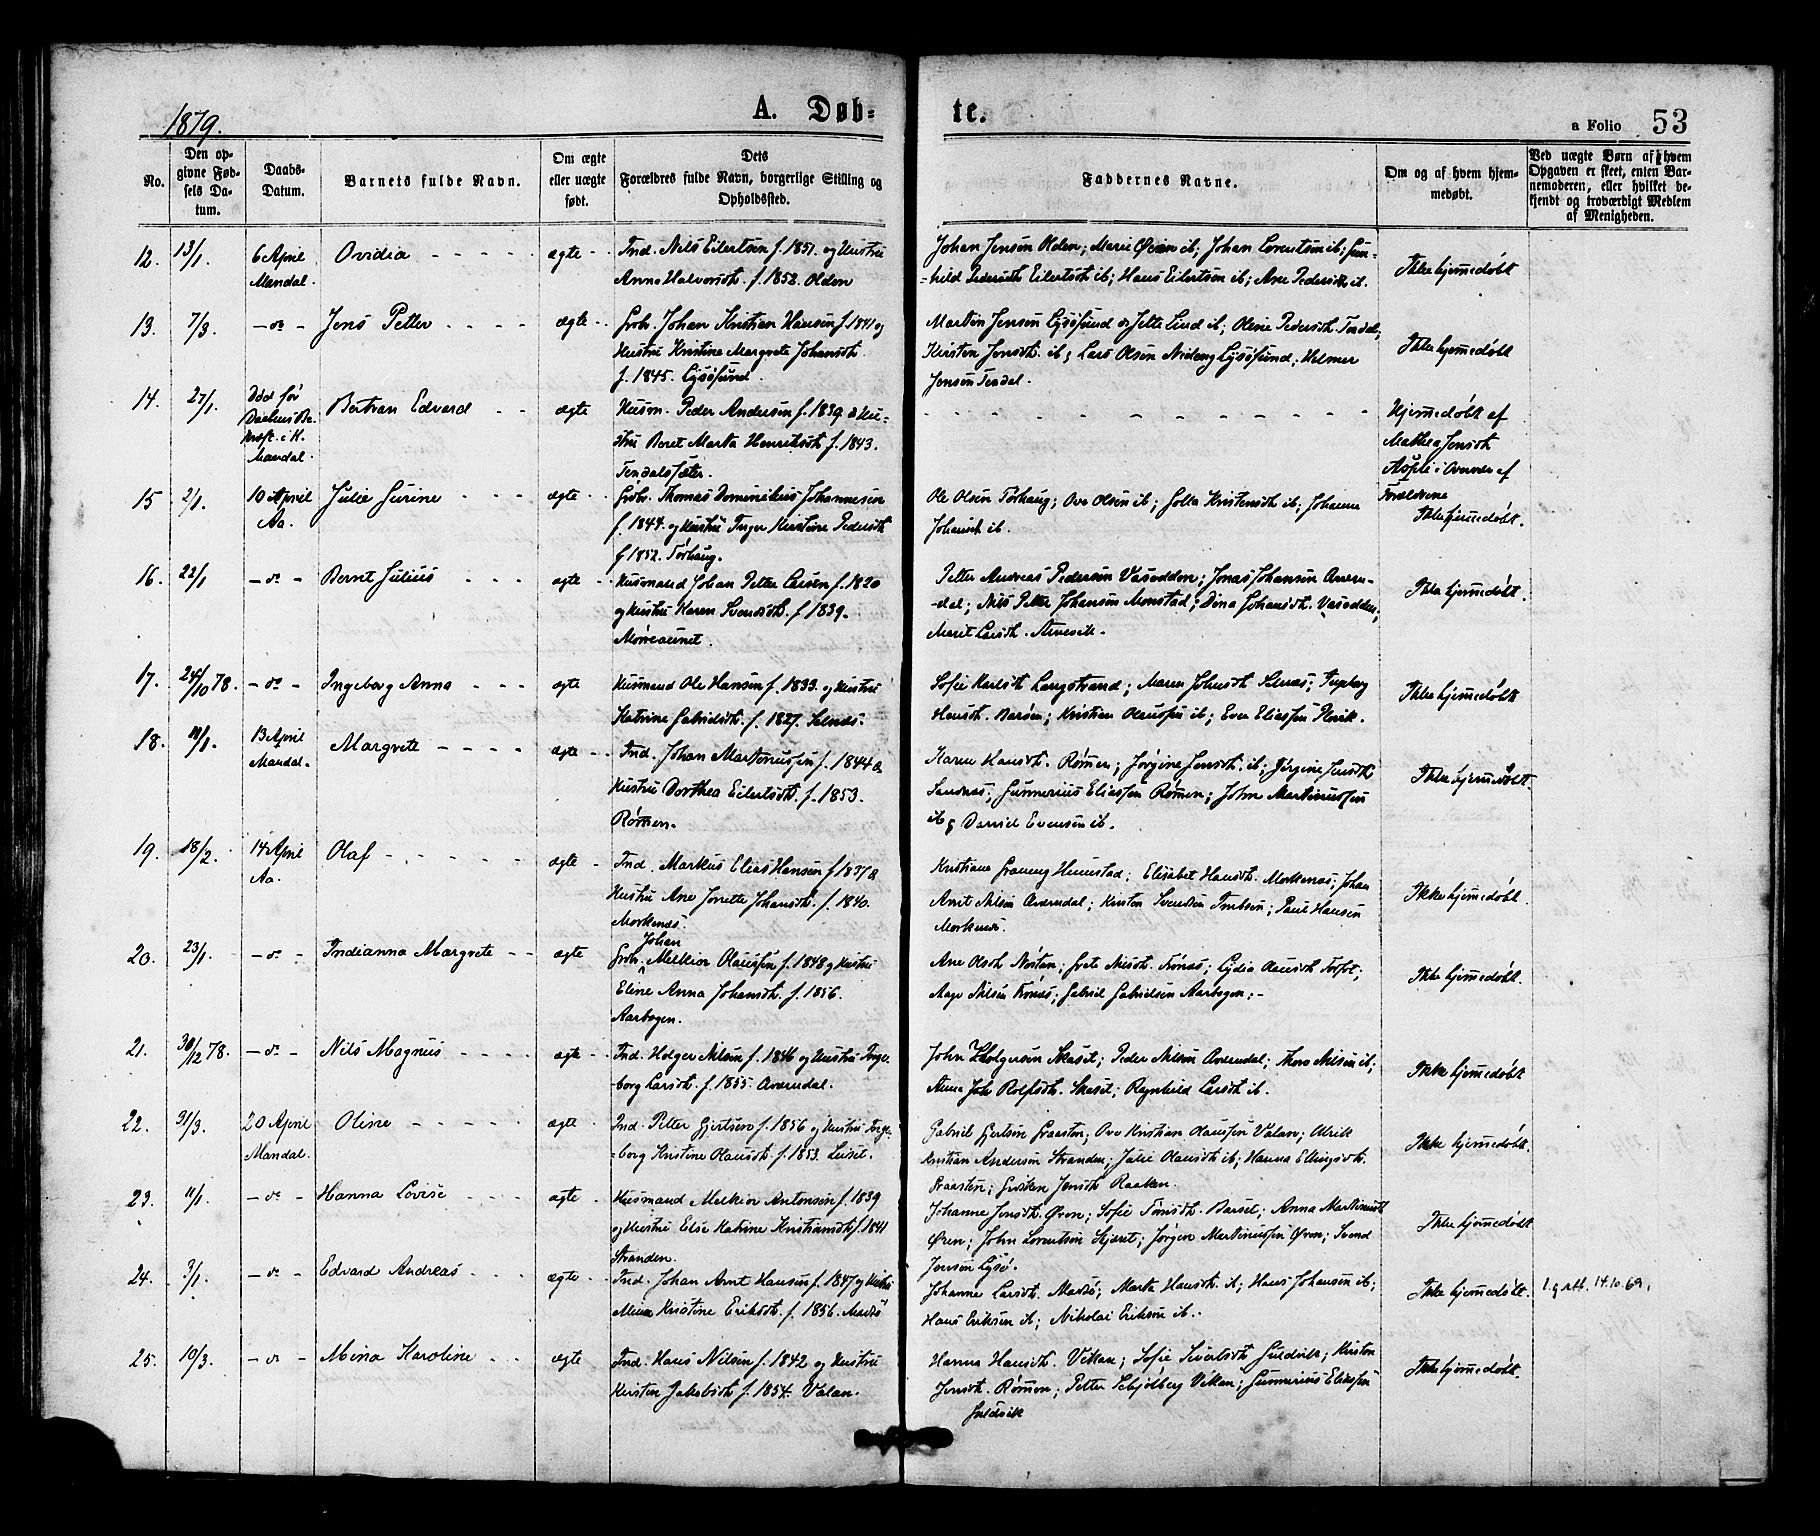 1879.
A. Døb-
te.
a Folio 53
No.
Den op-
givne Fød-
sels Da-
tum.
Daabs-
Datum.
Barnets fulde Navn.
Om ægte
eller uægte
født.
Dets
Forældres fulde Navn, borgerlige Stilling og
Opholdssted.
Faddernes Navne.
Om og af hvem hjem-
medøbt.
Ved uægte Børn af hvem
Opgaven er skeet, enten Bar-
nemoderen, eller hvilket be-
kjendt og troværdigt Medlem
af Menigheden.
12. 13/1. 6 April
Mandal.
Ovidia
ægte
Ind. Nils Eilertsen f. 1851. og Hustru
Anna Halvorsdt. f. 1852. Olden
Johan Jensen Olden; Marie ib; Johan Lorentsen ib; Gun-
hild Eilertsdt ib; Hans Eilertsen ib; Ane Pedersdt ib.
Ikke hjemmedøbt
13. 7/3. -do-
Jens Petter
ægte
Grbr. Johan Kristian Hansen f. 1841 og
Hustru Kristine Margrete Johansdt.
f. 1845. Lysøsund.
Martin Jensen Lysøsund og Jette Lind ib; Oline Pedersdt. Tendal;
Kirsten Jensdt. ib; Lars Olsen Lysøsund; Helmer
Jensen Tendal.
Ikke hjemmedøbt
14. 27/1. Død før
i K.
Mandal.
Bertran Edvard
ægte
Husm. Peder Andersen f. 1839 og Hu-
stru Beret Marta Henriksdt. f. 1843.
Tendalssæter.
Hjemmedøbt af
Mathea Jensdt
Aspli i Overvær af
Forældrene
15 2/1. 10 April
Aa.
Julie Gurine
ægte
Grbr. Thomas Dominikus Johannesen
f. 1844. og Hustru Inger Kirstine Pedersdt
f. 1852. Tørhaug.
Ole Olsen Tørhaug; Ove Olsen ib; Kristensdt ib; Johanna
Johansdt ib.
Ikke hjemmedøbt.
16. 22/1 -do-
Bernt Julius
ægte
Husmand Johan Petter Larsen f. 1820
og Hustru Karen Svendsdt. f. 1839.
Møreaunet.
Petter Andreas Pedersen Vasødden; Jonas Johansen Averm-
dal; Nils Petter Johansen Monstad; Dina Johansdt. Vasødden;
Marit Larsdt. Arnevik.
Ikke hjemmedøbt.
17. 24/10 78. -do-
Ingeborg Anna
ægte
Husmand Ole Hansen f. 1833. og Hustru
Katrine Gabrielsdt. f. 1827. Selnæs.
Sofie Karlsdt Langstrand; Maren Johnsdt Selnæs; Ingeborg
Hansdt. Barsøn; Kristian Olaussen ib; Even Eliassen
Ikke hjemmedøbt
18. 11/1. 13 April
Mandal.
Margrete
ægte
Ind. Johan Martinussen f. 1844 og
Hustru Dorthea Eilertsdt. f. 1853.
Rømen.
Karen Hansdt. Rømen; Jørgine Jensdt. ib; Jørgine Jensdt
Sandnæs; Gunnerius Eliassen Rømen; John Martinussen
ib og Daniel Evensen ib.
Ikke hjemmedøbt.
19. 18/2. 14 April
Aa.
Olaf
ægte
Ind. Markus Elias Hansen f. 1837 og
Hustru Ane Jonette Johansdt. f. 1840.
Morkenæs.
Kristiana Graneng Humstad; Elisabet Hansdt. Morkenæs; Johan
Arnt Nilsen Avermdal; Kirsten Svendsen; Paul Hansen
Morkenæs.
Ikke hjemmedøbt.
20. 23/1. -do-
Indianna Margrete
ægte
Johan
Grbr. Melkior Olaussen f. 1848 og Hustru
Eline Anna Johansdt. f. 1856.
Aarbogen.
Ane Olsdt Nøstan; Grete Nilsdt. Frønæs; Lydia Olausdt;
Aage Nilsen Frønæs; Gabriel Gabrielsen Aarbogen;
Ikke hjemmedøbt.
21. 30/12 78. -do-
Nils Magnus
ægte
Ind. Holger Nilsen f. 1846 og Hustru Inge-
borg Larsdt. f. 1855. Avermdal.
John Holgersen Skaset; Peder Nilsen Avermdal; Thore Nilsen ib;
Anna Joh Rolfsdt. Skaset; Ragnhild Larsdt ib.
Ikke hjemmedøbt
22. 31/3. 20 April
Mandal.
Oline
ægte
Ind. Petter Gjertsen f. 1856 og Hustru Inge-
borg Kristine Olausdt. f. 1853. Luset.
Gabriel Gjertsen Graasten; Ove Kristian Olaussen Valan; Ulrik
Kristian Andersen Stranden; Julie Olausdt ib; Hanna Ellingsdt.
Graasten; Jensdt Raaken.
Ikke hjemmedøbt.
23. 11/1. -do-
Hanna Lovise
ægte
Husmand Melkior Antonsen f. 1839
og Hustru Else Katrine Kristiansdt f. 1841
Stranden.
Johanne Jensdt Øren; Sofie Barset; Anna Martinusdt
Øren; John Lorentsen; Jørgen Martinussen Øren; Svend
Jensen Lysø.
Ikke hjemmedøbt
24. 3/1. -do-
Edvard Andreas
ægte
Ind. Johan Arnt Hansen f. 1847 og Hustru
Kristine Eriksdt. f. 1856. Madsø
Johanne Larsdt. Madsø; Marta Hansdt. ib; Hans Johansen ib;
Hans Eriksen ib; Nikolai Eriksen ib.
Ikke hjemmedøbt.
l. g. att. 14.10.69.
25. 10/3. -do-
Mina Karoline
ægte
Ind. Hans Nilsen f. 1842 og Hustru
Kirsten Jakobsdt f. 1854. Valan.
Hanna Hansdt. Vikan; Sofie Sivertsdt Guldvik; Kirsten
Jensdt. Rømen; Petter Schjølberg Vikan; Gunnerius Eliassen
Guldvik
Ikke hjemmedøbt.